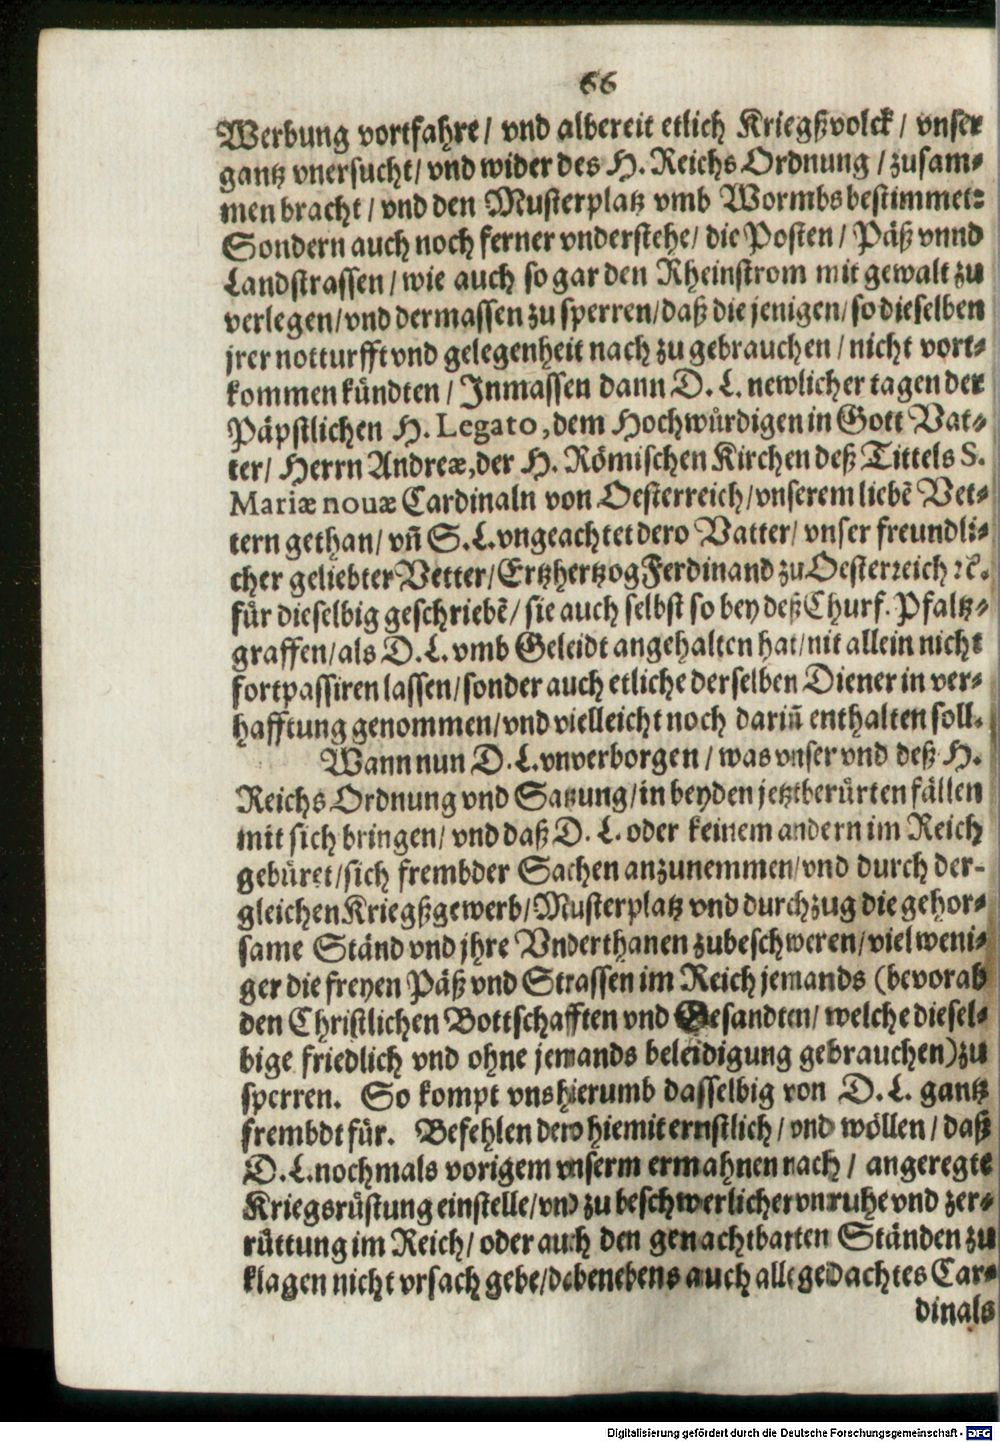 66
Werbung vortfahre/ vnd albereit etlich Kriegßvolck/ vnser
gantz vnersucht/ vnd wider des H. Reichs Ordnung/ zusam-
men bracht/ vnd den Musterplatz vmb Wormbs bestimmet:
Sondern auch noch ferner vnderstehe/ die Posten/ Päß vnnd
Landstrassen/ wie auch so gar den Rheinstrom mit gewalt zu
verlegen/ vnd dermassen zu sperren/ daß die jenigen/ so dieselben
jrer notturfft vnd gelegenheit nach zu gebrauchen/ nicht vort-
kommen kündten/ Inmassen dann D. L. newlicher tagen der
Päpstlichen H. Legato, dem Hochwürdigen in Gott Vat-
ter/ Herrn Andreæ, der H. Römischen Kirchen deß Tittels S.
Mariæ nouæ Cardinaln von Oesterreich/ vnserem liebē Vet-
tern gethan/ vñ S. L. vngeachtet dero Vatter/ vnser freundli-
cher geliebter Vetter/ Ertzhertzog Ferdinand zu Oesterreich ꝛc.
für dieselbig geschriebē/ sie auch selbst so bey deß Churf. Pfaltz-
graffen/ als D. L. vmb Geleidt angehalten hat/ nit allein nicht
fortpassiren lassen/ sonder auch etliche derselben Diener in ver-
hafftung genommen/ vnd vielleicht noch dariñ enthalten soll.
Wann nun D. L. vnverborgen/ was vnser vnd deß H.
Reichs Ordnung vnd Satzung/ in beyden jetztberürten fällen
mit sich bringen/ vnd daß D. L. oder keinem andern im Reich
gebüret/ sich frembder Sachen anzunemmen/ vnd durch der-
gleichen Kriegßgewerb/ Musterplatz vnd durchzug die gehor-
same Ständ vnd jhre Vnderthanen zubeschweren/ viel weni-
ger die freyen Päß vnd Strassen im Reich jemands (bevorab
den Christlichen Bottschafften vnd Gesandten/ welche diesel-
bige friedlich vnd ohne jemands beleidigung gebrauchen) zu
sperren. So kompt vns hierumb dasselbig von D. L. gantz
frembdt für. Befehlen dero hiemit ernstlich/ vnd wöllen/ daß
D. L. nochmals vorigem vnserm ermahnen nach/ angeregte
Kriegsrüstung einstelle/ vnd zu beschwerlicher vnruhe vnd zer-
rüttung im Reich/ oder auch den genachtbarten Ständen zu
klagen nicht vrsach gebe/ debenebens auch all gedachtes Car-
dinals
Digitalisierung gefördert durch die Deutsche Forschungsgemeinschaft - DFG